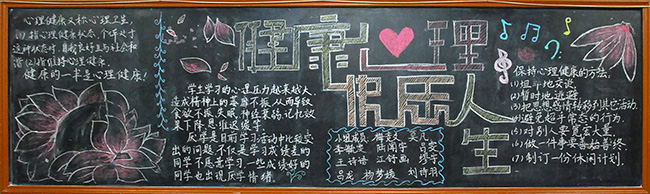 心理健康又称心理卫生,
这种状态时,自我良好且与社会和
谐(2)指维持心理健康
健康的一半是心理健康!
学生学习的心理压力越来越大
造成精神上的萎靡不振,从而导致
食欲不振、失眠、神经衰弱、记忆效
果下降、思维迟缓等
厌学是目前学习活动中比较突
出的问题,不仅是学习成绩差的
同学不愿意学习,一些成绩好的
同学也出现厌学情绪.
健康心理
快乐人生
小组成员
保持心理健康的方法:
(1)坦率地交谈
(2)暂时地逃避
(3)把思想感情转移到其它活动.
(4)避免超乎常态的行为.
(5)对别人要宽宏大量
(6)做一件事要善始善终.
(7)制订一份休闲计划.